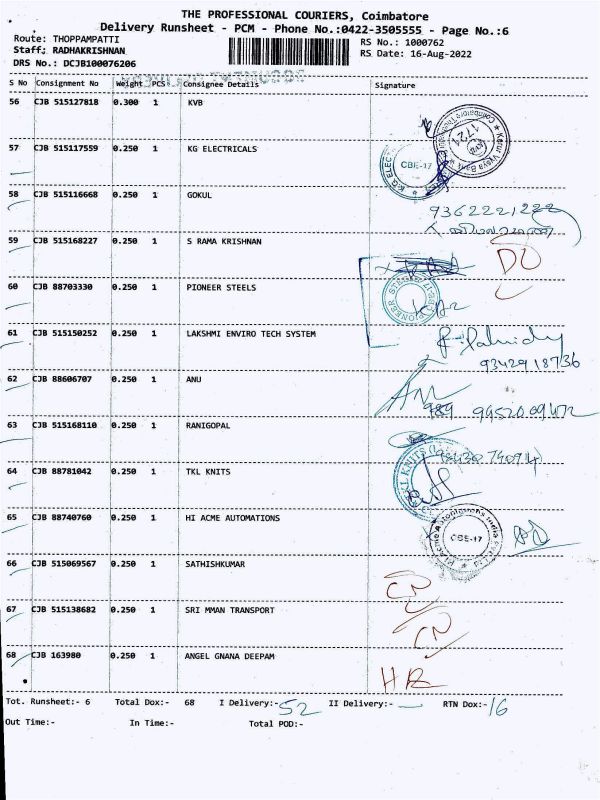 THE PROFESSIONAL COURIERS, Coimbatore
Delivery Runsheet - PCM - Phone No.:0422-3505555 - Page No.:6
Route: THOPPAMPATTI
RS No.: 1000762
Staff: RADHAKRISHNAN
RS Date: 16-Aug-2022
DRS No.: DCJB100076206
S No Consignment No Weight PCS Consignee Details Signature
56 CJB 515127818 0.300 1 KVB
1724
57 CJB 515117559 0.250 1 KG ELECTRICALS
CBE-17
58 CJB 515116668 0.250 1 GOKUL
9362221222
59 CJB 515168227 0.250 1 S RAMA KRISHNAN
DO
60 CJB 88703330 0.250 1 PIONEER STEELS
61 CJB 515150252 0.250 1 LAKSHMI ENVIRO TECH SYSTEM
9342918736
62 CJB 88606707 0.250 1 ANU
989 9952009472
63 CJB 515168110 0.250 1 RANIGOPAL
64 CJB 88781042 0.250 1 TKL KNITS
65 CJB 88740760 0.250 1 HI ACME AUTOMATIONS
CBE-17
66 CJB 515069567 0.250 1 SATHISHKUMAR
CN
67 CJB 515138682 0.250 1 SRI MMAN TRANSPORT
CN
68 CJB 163980 0.250 1 ANGEL GNANA DEEPAM
Tot. Runsheet:- 6 Total Dox:- 68 I Delivery:- 52 II Delivery:- — RTN Dox:- 16
Out Time:- In Time:- Total POD:-